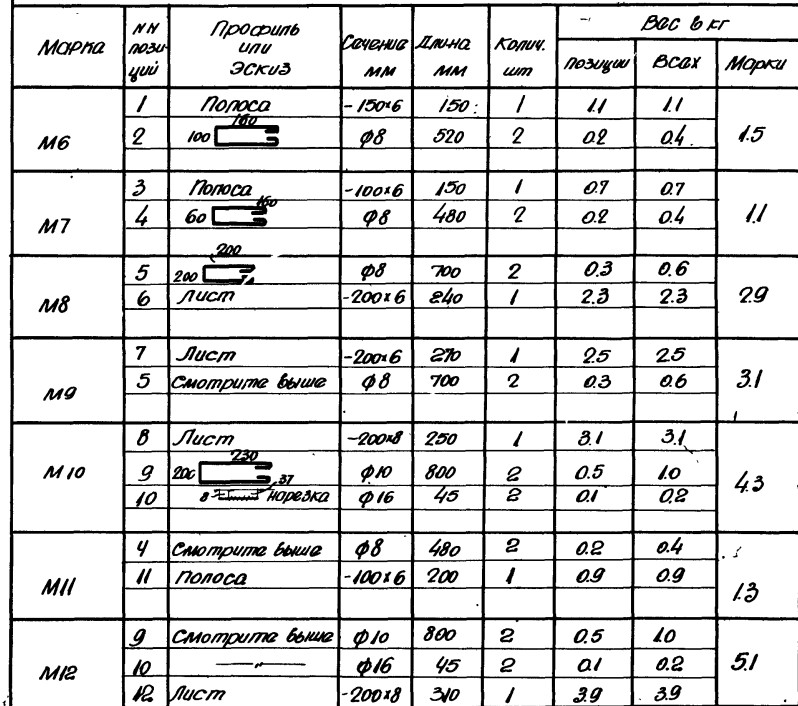 Марка NN позиций Профиль или Эскиз Сечение мм Длина мм Колич. шт Вес в кг
позиции Всех Марки
М6 1.5
1 Полоса -150x6 150 1 1.1 1.1
2 100 160 ф8 520 2 0.2 0.4
М7 1.1
3 Полоса -100x6 150 1 0.7 0.7
4 60 160 ф8 480 2 0.2 0.4
М8 2.9
5 200 200 ф8 700 2 0.3 0.6
6 Лист -200x6 240 1 2.3 2.3
М9 3.1
7 Лист -200x6 270 1 2.5 2.5
5 Смотрите выше ф8 700 2 0.3 0.6
М10 4.3
8 Лист -200x8 250 1 3.1 3.1
9 200 230 ф10 800 2 0.5 1.0
10 8 37 нарезка ф16 45 2 0.1 0.2
М11 1.3
4 Смотрите выше ф8 480 2 0.2 0.4
11 полоса -100x6 200 1 0.9 0.9
М12 5.1
9 Смотрите выше ф10 800 2 0.5 1.0
10 —"— ф16 45 2 0.1 0.2
12 Лист -200x8 310 1 3.9 3.9